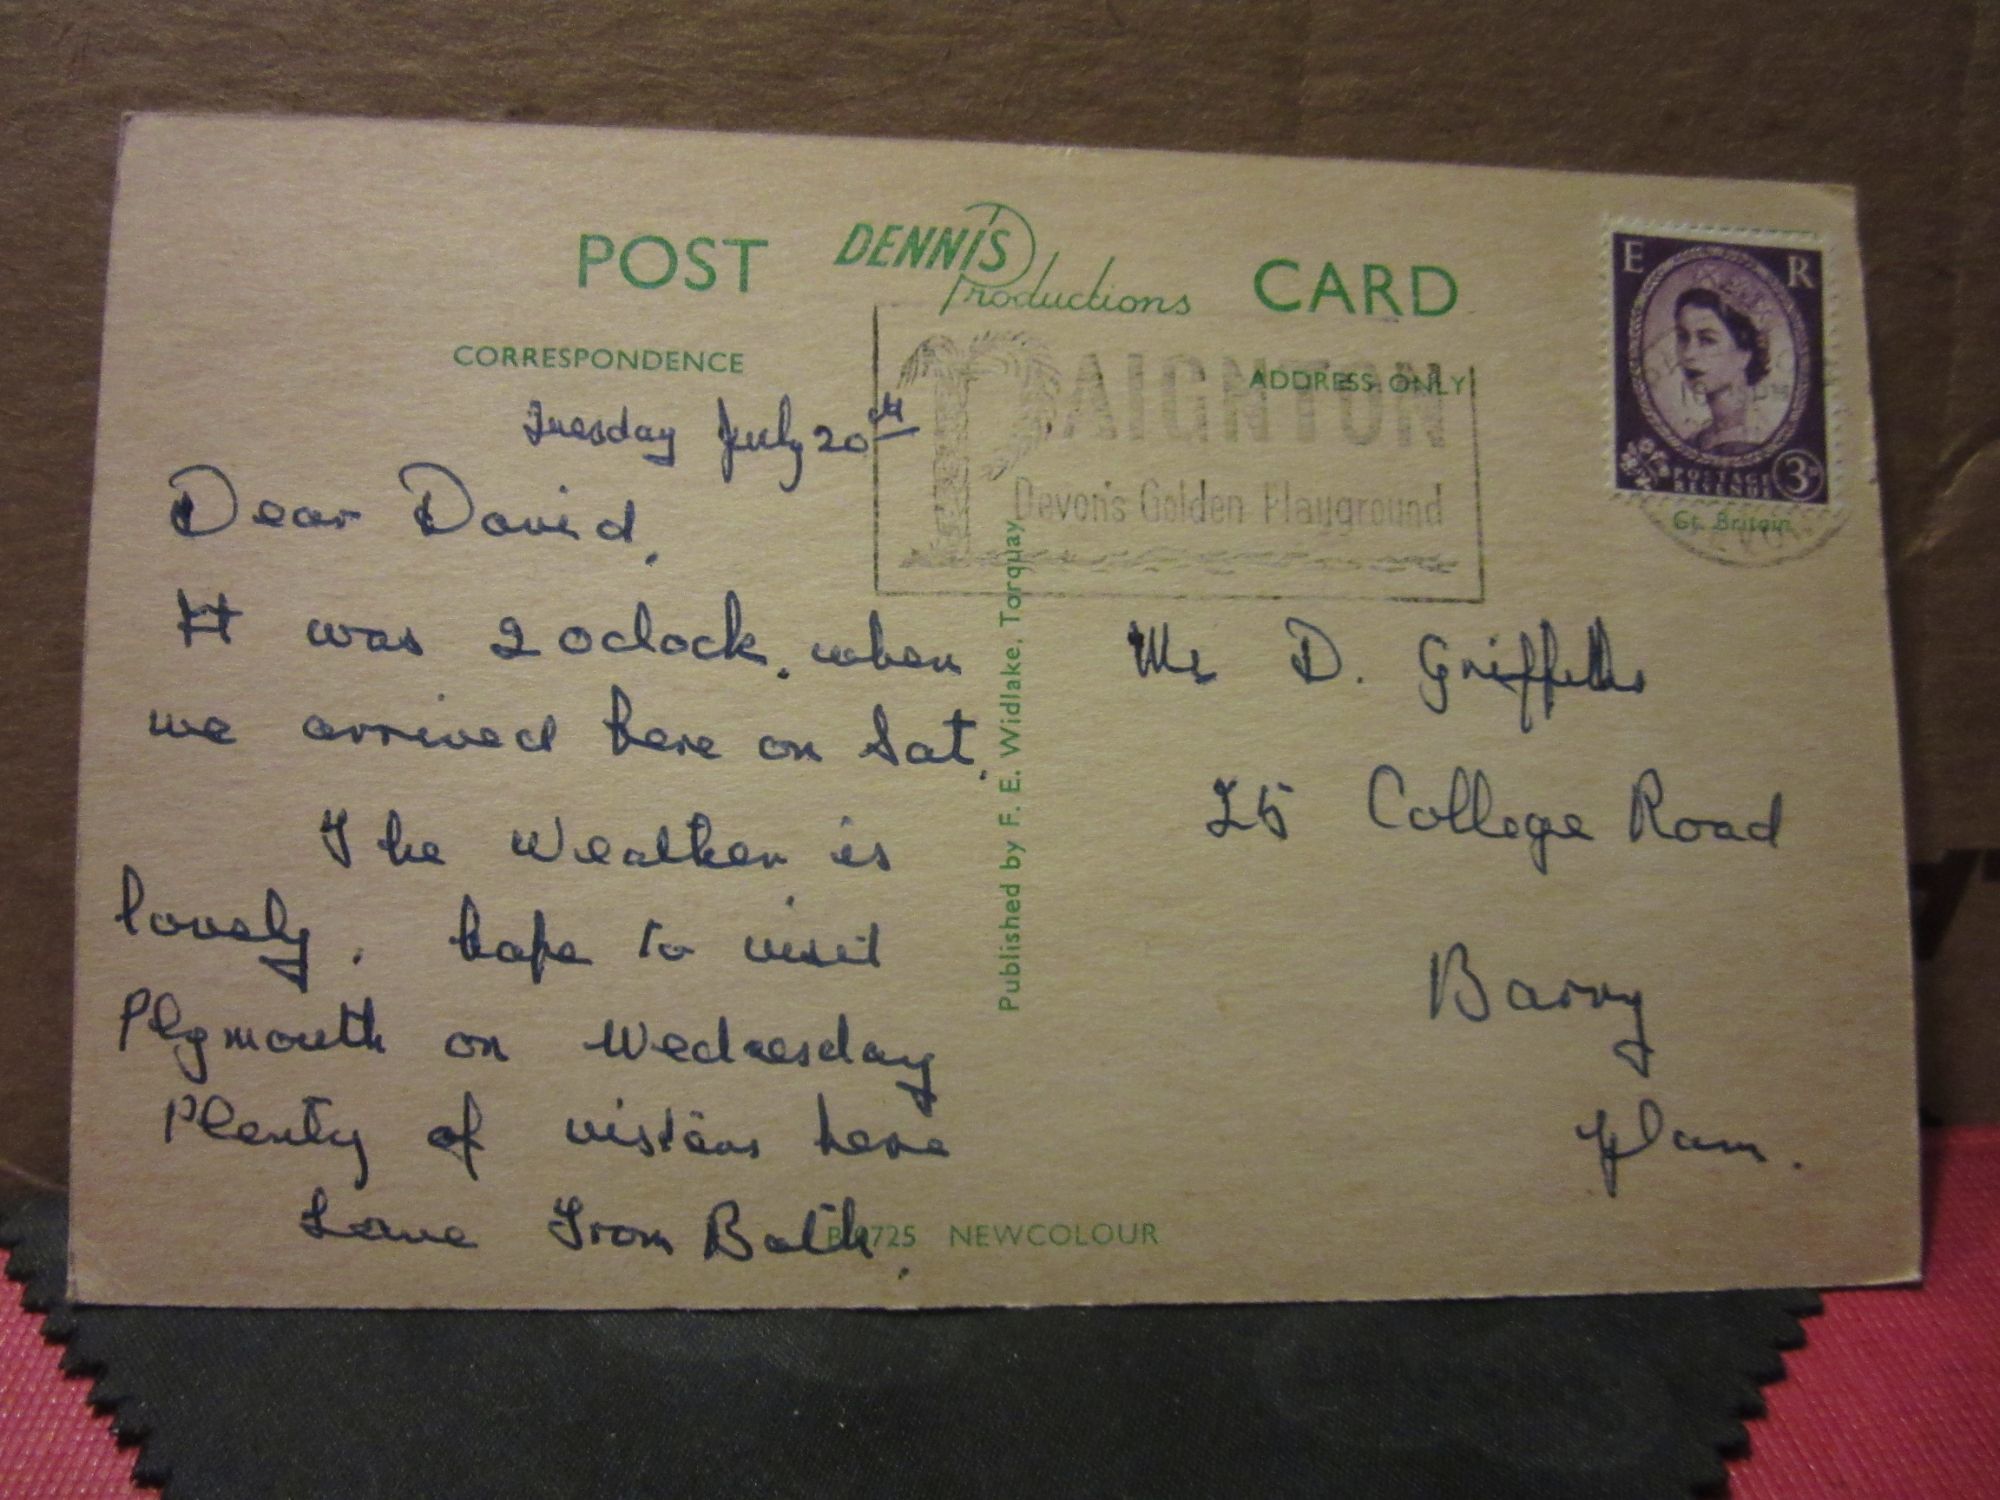 POST DENNIS Productions CARD
CORRESPONDENCE
ADDRESS ONLY
E R
POSTAGE
REVENUE
3D
Gt. Britain
PAIGNTON
Devon's Golden Playground
Tuesday July 20th
Dear David,
It was 2 oclock, when
we arrived here on Sat.
The Weather is
lovely. hope to visit
Plymouth on Wednesday
Plenty of vistors here
Love From Both.
Published by F. E. Widlake, Torquay
Mr D. Griffiths
25 College Road
Barry
Glam.
725 NEWCOLOUR